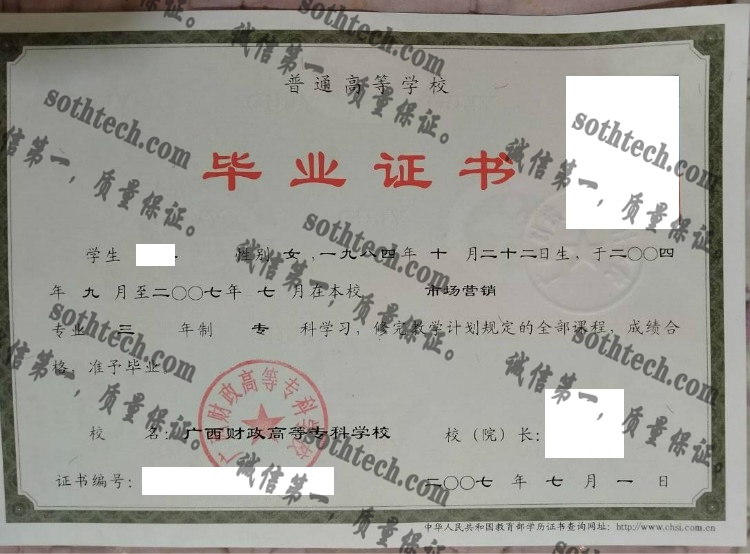 普通高等学校
毕业证书
学生 性别 女 ,一九八四年 十 月二十二日生，于二〇〇四
年 九 月至二〇〇七年 七 月在本校 市场营销
专业 三 年制 专 科学习，修完教学计划规定的全部课程，成绩合
格，准予毕业。
广西财政高等专科学校
校 名：广西财政高等专科学校 校（院）长：
证书编号： 二〇〇七 年 七 月 一 日
中华人民共和国教育部学历证书查询网址：http://www.chsi.com.cn
sothtech.com
诚信第一，质量保证。
sothtech.com
诚信第一，质量保证。
sothtech.com
诚信第一，质量保证。
sothtech.com
诚信第一，质量保证。
sothtech.com
诚信第一，质量保证。
sothtech.com
诚信第一，质量保证。
sothtech.com
诚信第一，质量保证。
sothtech.com
诚信第一，质量保证。